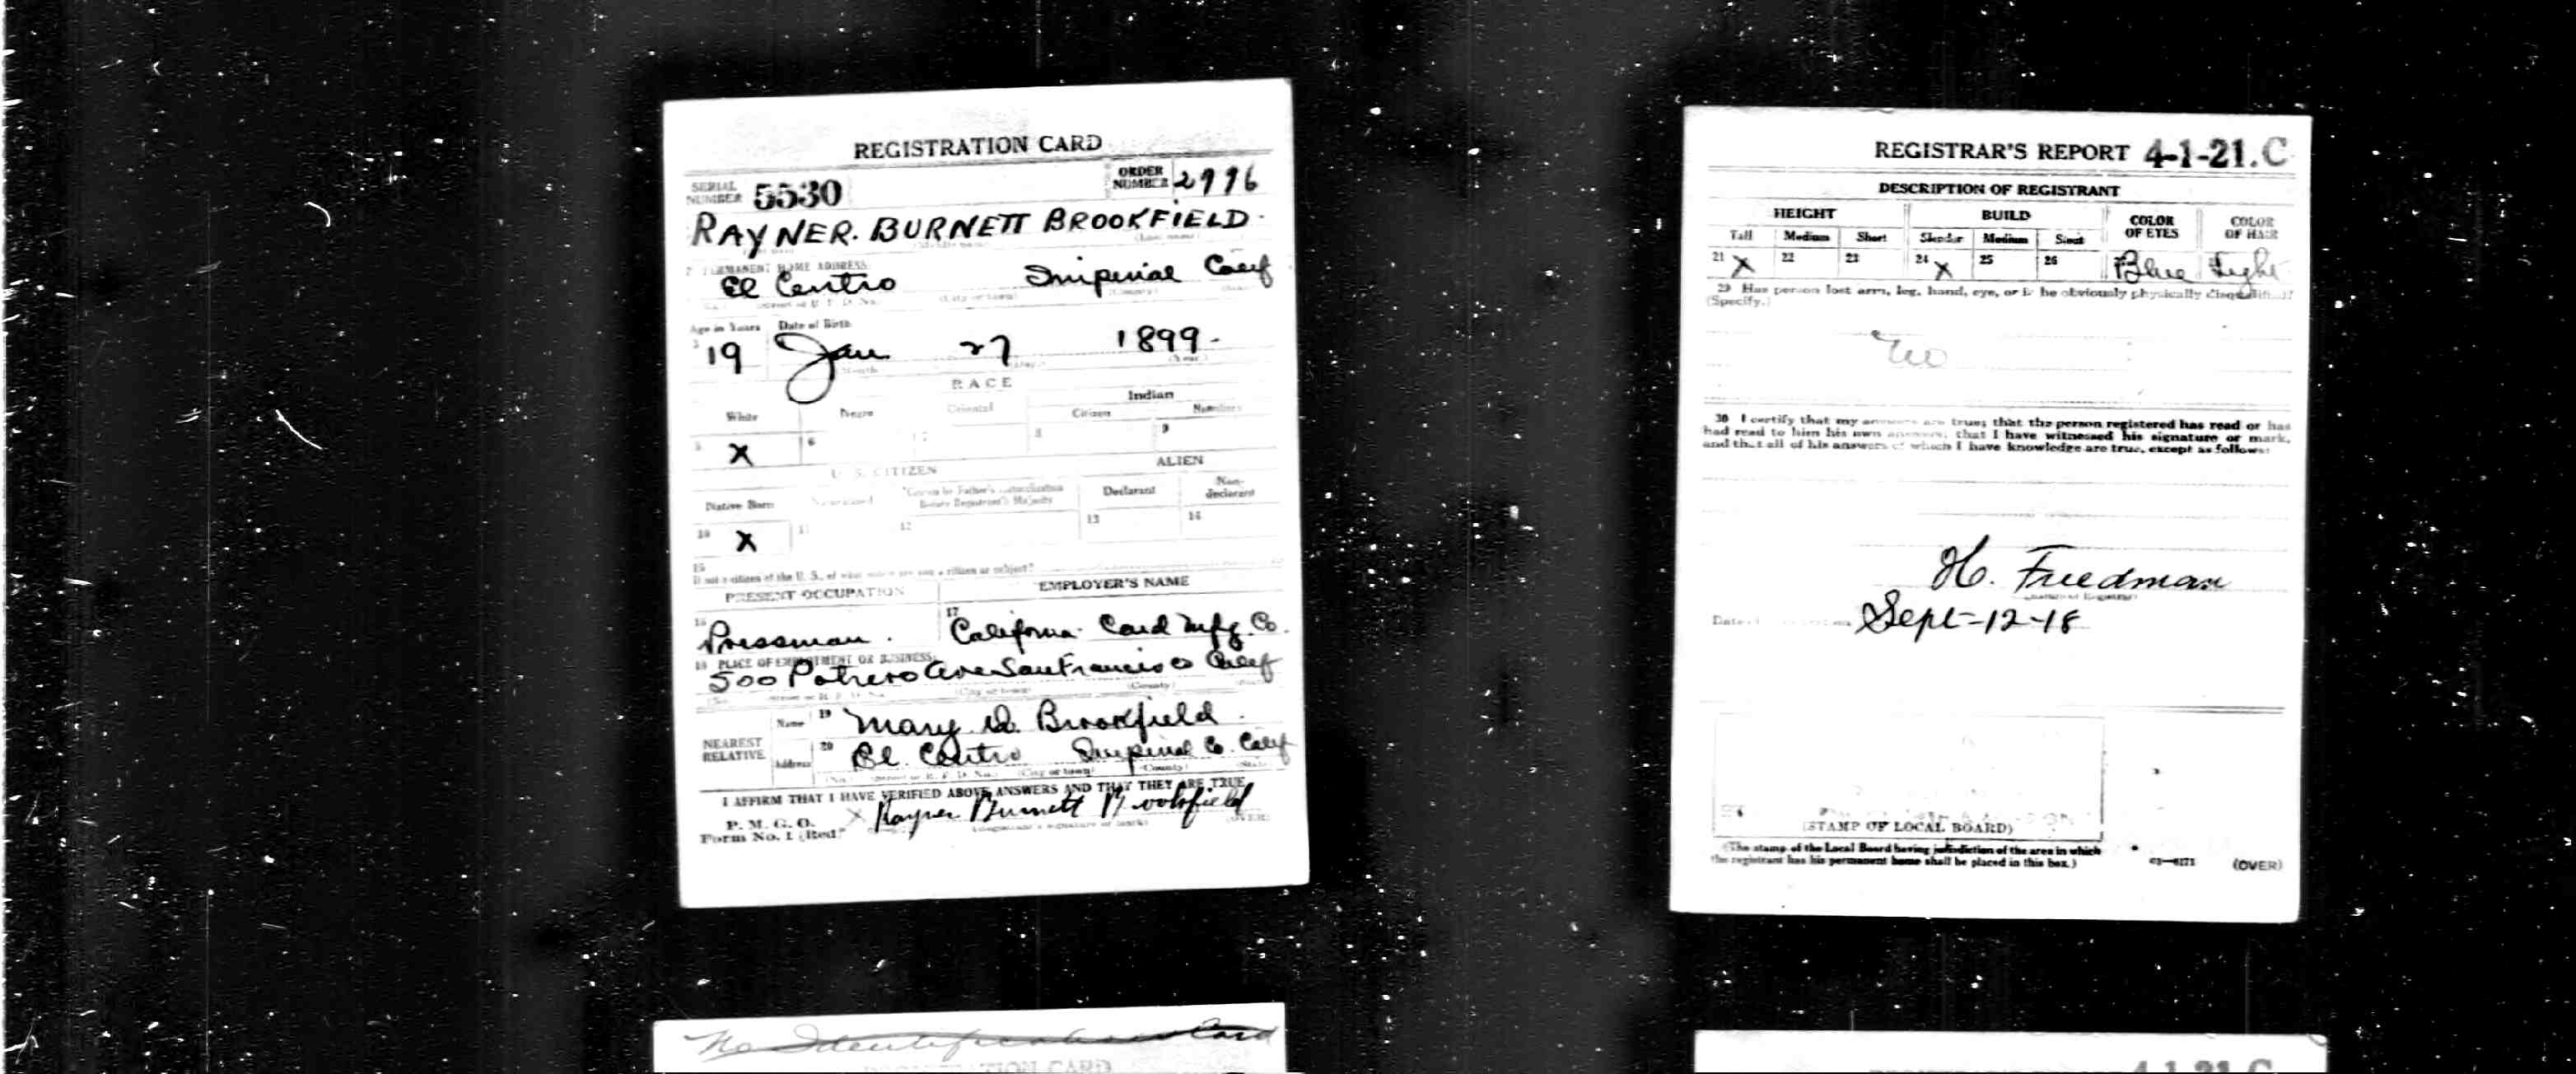 REGISTRATION CARD
SERIAL NUMBER 5530 ORDER NUMBER 2996
RAYNER. BURNETT BROOKFIELD.
(Last name)
2 PERMANENT HOME ADDRESS
El Centro Imperial Calif
(City or town) (County)
Age in Years Date of Birth
19 Jan 27 1899.
(Month) (Day) (Year)
RACE
White Negro Oriental Indian
Citizen
5 X 6 7 8 9
U. S. CITIZEN ALIEN
Native Born Declarant Non-declarant
10 X 11 12 13 14
15
If not a citizen of the U. S., of what nation are you a citizen or subject?
PRESENT OCCUPATION EMPLOYER'S NAME
16 Pressman. 17 California Card Mfg. Co.
18 PLACE OF EMPLOYMENT OR BUSINESS
500 Potrero Ave San Francisco Calif
(City or town) (County)
NEAREST RELATIVE Name 19 Mary D. Brookfield.
Address 20 El. Centro Imperial Co. Calif
(No.) (Street or R. F. D. No.) (City or town) (County) (State)
I AFFIRM THAT I HAVE VERIFIED ABOVE ANSWERS AND THAT THEY ARE TRUE
P. M. G. O.
Form No. 1 (Red) X Rayner Burnett Brookfield
(Registrant's signature or mark) (OVER)
No Identification Card
REGISTRATION CARD
REGISTRAR'S REPORT 4-1-21.C
DESCRIPTION OF REGISTRANT
HEIGHT BUILD COLOR OF EYES COLOR OF HAIR
Tall Medium Short Slender Medium Stout
21 X 22 23 24 X 25 26 Blue Light
29 Has person lost arm, leg, hand, eye, or is he obviously physically disqualified?
(Specify.)
No
30 I certify that my answers are true; that the person registered has read or has
had read to him his own answers; that I have witnessed his signature or mark,
and that all of his answers of which I have knowledge are true, except as follows:
H. Freedman
(Signature of Registrar)
Date Sept-12-18
(STAMP OF LOCAL BOARD)
(The stamp of the Local Board having jurisdiction of the area in which
the registrant has his permanent home shall be placed in this box.)
03—6171 (OVER)
4-1-21.C